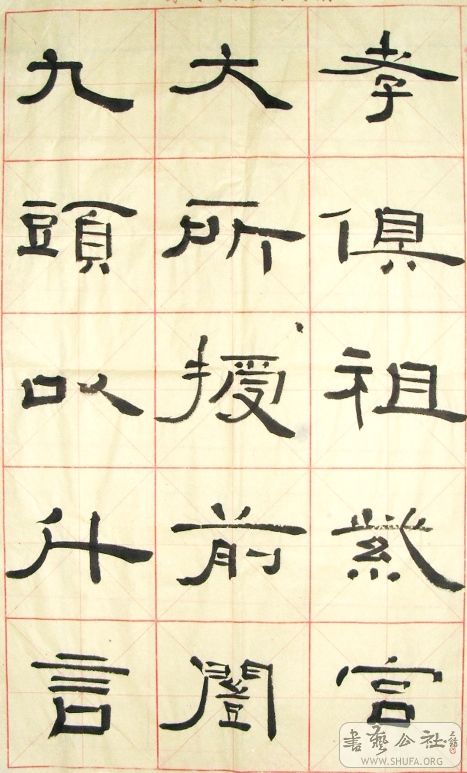 孝俱祖紫宫
大所授前闓
九頭以什言
書藝公社
WWW.SHUFA.ORG